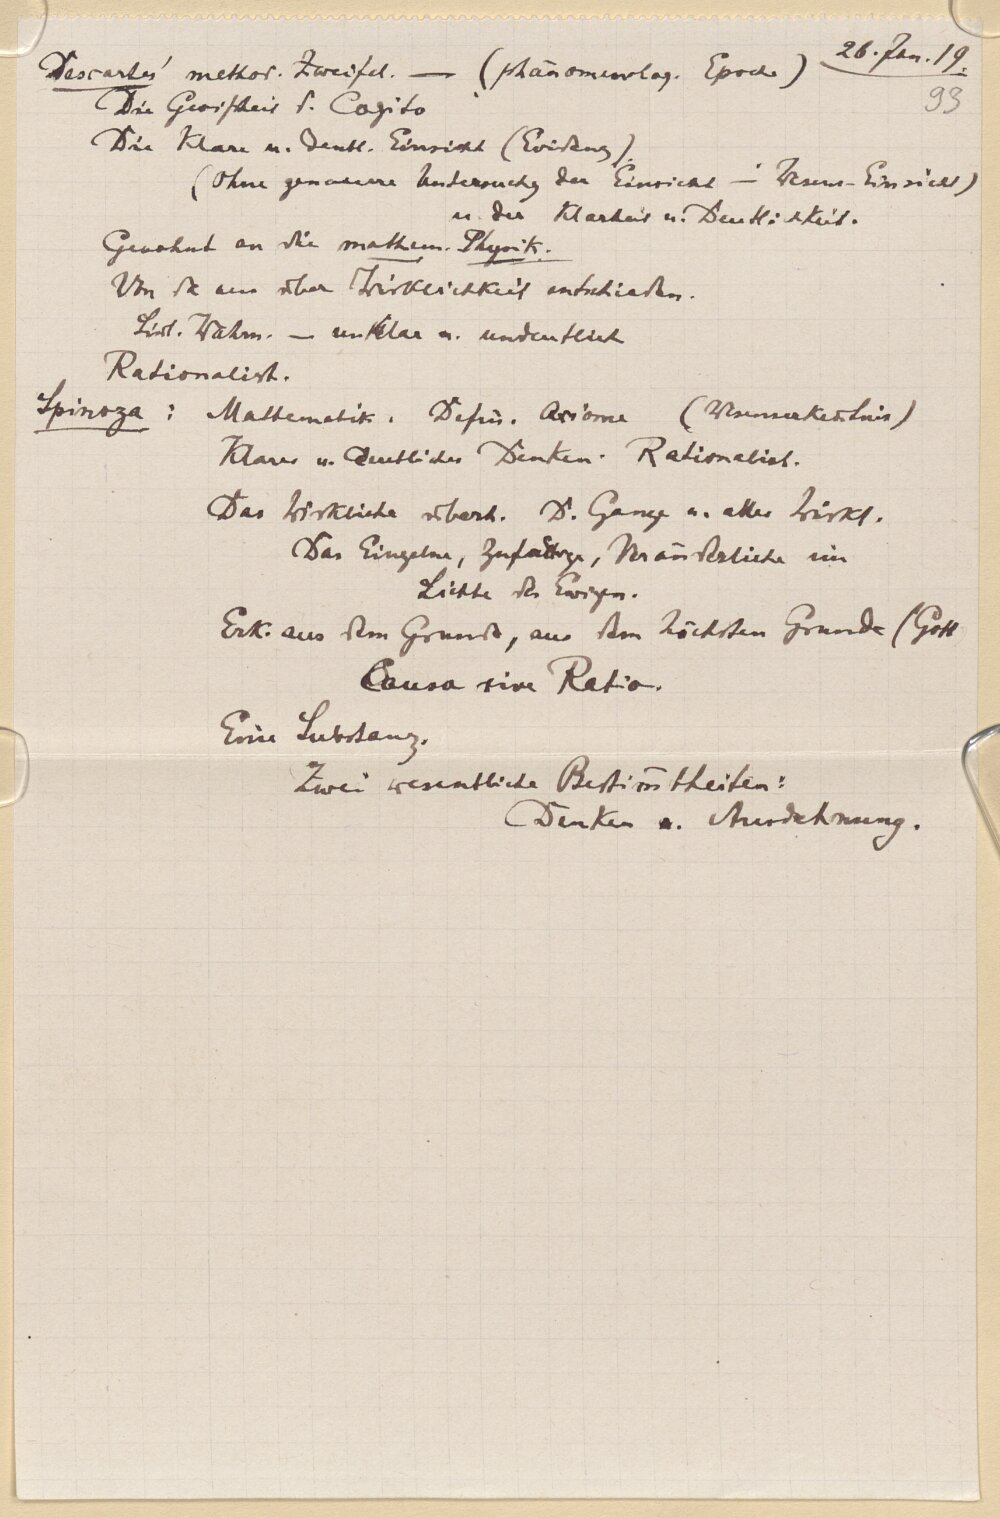 Descartes' method. Zweifel. — (phänomenolog. Epoche) 26. Jan. 19.
93
Die Gewißheit d. Cogito
Die Klare u. deutl. Einsicht (Evidenz)
(Ohne genauere Untersuchg der Einsicht – Wesens-Einsicht)
u. der Klarheit u. Deutlichkeit.
Gewohnt an die mathem. Physik.
Von da aus über Wirklichkeit entschieden.
Sinl. Wahrn. — unklar u. undeutlich
Rationalist.
Spinoza : Mathematik. Defin. Axiome (Wesenserkentnis)
Klares u. deutliches Denken. Rationalist.
Das Wirkliche überh. D. Ganze u. alles Wirkl.
Das Einzelne, Zufällige, Veränderliche im
Lichte des Ewigen.
Erk. aus dem Grunde, aus dem höchsten Grunde (Gott
Causa sive Ratio.
Eine Substanz.
Zwei wesentliche Bestim̄theiten:
Denken u. Ausdehnung.